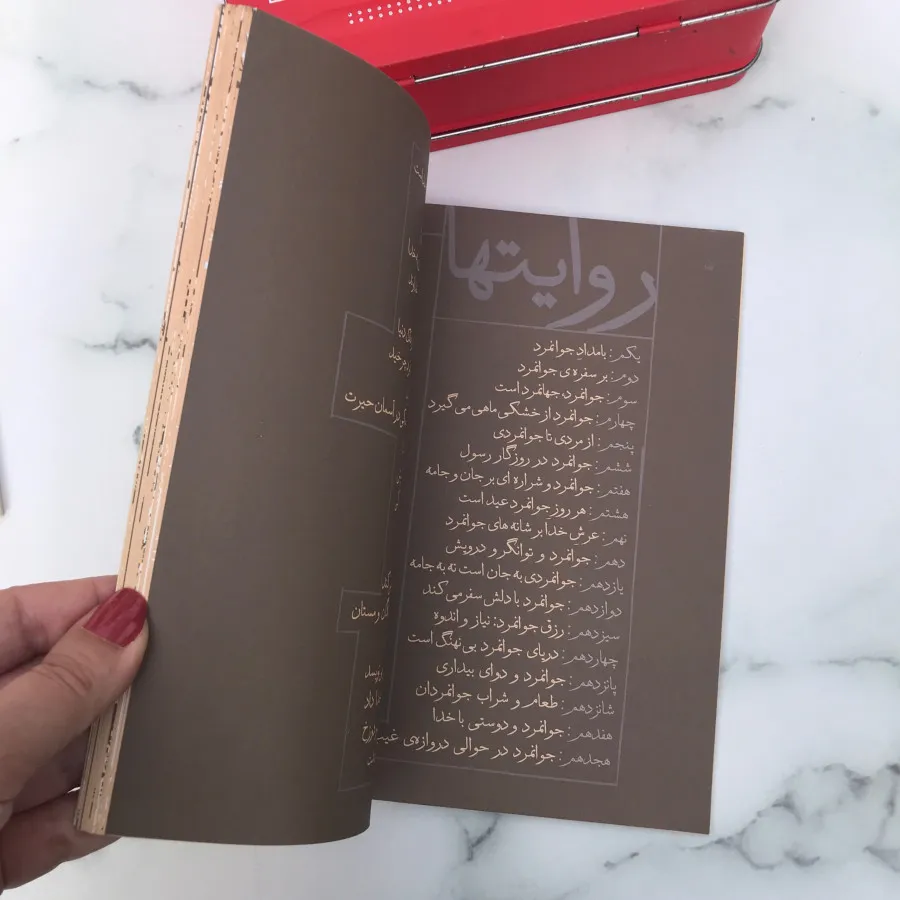 روایتها
یکم: بامدادِ جوانمرد
دوم: بر سفره‌ی جوانمرد
سوم: جوانمرد، جهانمرد است
چهارم: جوانمرد از خشکی ماهی می‌گیرد
پنجم: از مردی تا جوانمردی
ششم: جوانمرد در روزگار رسول
هفتم: جوانمرد و شراره ای بر جان و جامه
هشتم: هر روز جوانمرد عید است
نهم: عرش خدا بر شانه های جوانمرد
دهم: جوانمرد و توانگر و درویش
یازدهم: جوانمردی به جان است نه به جامه
دوازدهم: جوانمرد با دلش سفر می‌کند
سیزدهم: رزق جوانمرد: نیاز و اندوه
چهاردهم: دریای جوانمرد بی نهنگ است
پانزدهم: جوانمرد و دوای بیداری
شانزدهم: طعام و شراب جوانمردان
هفدهم: جوانمرد و دوستی با خدا
هجدهم: جوانمرد در حوالی دروازه‌ی غیب
دنیا
در آسمان حیرت
رستان